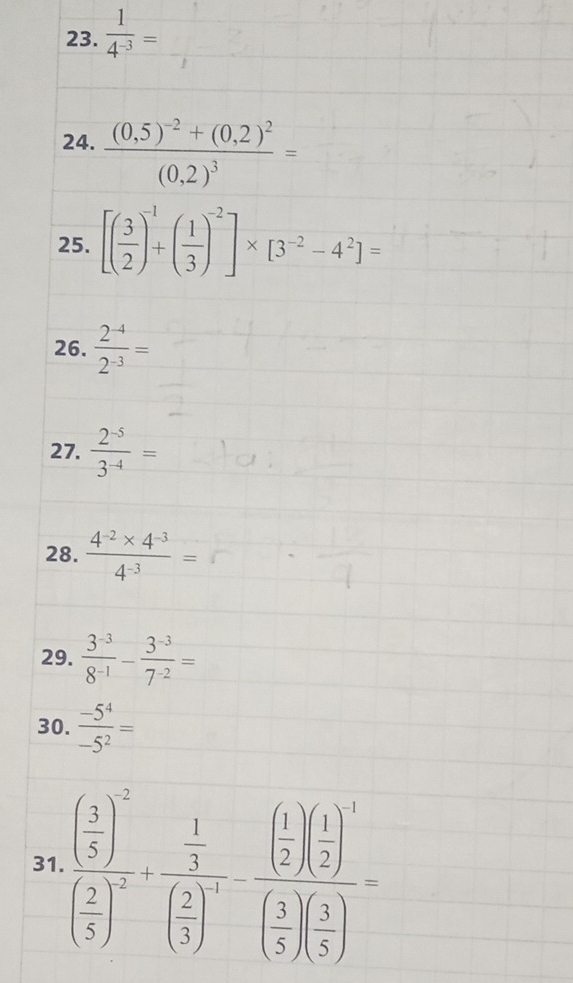 23. \frac{1}{4^{-3}} =
24. \frac{(0,5)^{-2} + (0,2)^2}{(0,2)^3} =
25. \left[\left(\frac{3}{2}\right)^{-1} + \left(\frac{1}{3}\right)^{-2}\right] \times [3^{-2} - 4^2] =
26. \frac{2^{-4}}{2^{-3}} =
27. \frac{2^{-5}}{3^{-4}} =
28. \frac{4^{-2} \times 4^{-3}}{4^{-3}} =
29. \frac{3^{-3}}{8^{-1}} - \frac{3^{-3}}{7^{-2}} =
30. \frac{-5^4}{-5^2} =
31. \frac{\left(\frac{3}{5}\right)^{-2}}{\left(\frac{2}{5}\right)^{-2}} + \frac{\frac{1}{3}}{\left(\frac{2}{3}\right)^{-1}} - \frac{\left(\frac{1}{2}\right)\left(\frac{1}{2}\right)^{-1}}{\left(\frac{3}{5}\right)\left(\frac{3}{5}\right)} =